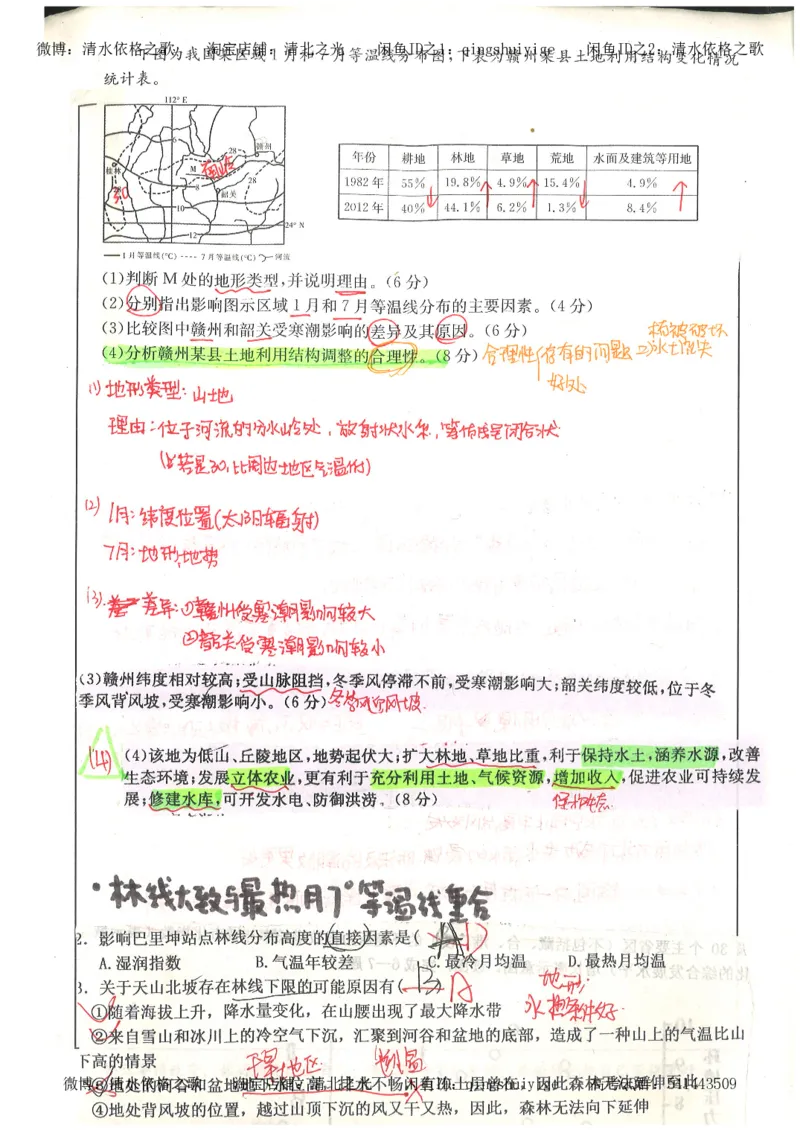 微博：清水依格之歌 淘宝店铺：清北之光 闲鱼ID之1：qingshuiyige 闲鱼ID之2：清水依格之歌
下图为我国某区域1月和7月等温线分布图;下表为赣州某县土地利用结构变化情况
统计表。
112° E
6
28
赣州
桂林
M
南岭
28
30
8
韶关
10
24° N
12
1月等温线(℃) 7月等温线(℃) 河流
年份 耕地 林地 草地 荒地 水面及建筑等用地
1982年 55% 19.8% 4.9% 15.4% 4.9%
2012年 40% 44.1% 6.2% 1.3% 8.4%
(1)判断M处的地形类型,并说明理由。(6分)
(2)分别指出影响图示区域1月和7月等温线分布的主要因素。(4分)
(3)比较图中赣州和韶关受寒潮影响的差异及其原因。(6分)
(4)分析赣州某县土地利用结构调整的合理性。(8分)
合理性 存有的问题
植被破坏
水土流失
好处
(1)地形类型:山地
理由:位于河流的分水岭处,放射状水系,等值线呈闭合状
(若是30,比周边地区气温低)
(2)
1月:纬度位置(太阳辐射)
7月:地形,地势
(3).
差异:①赣州受寒潮影响较大
②韶关受寒潮影响较小
(3)赣州纬度相对较高;受山脉阻挡,冬季风停滞不前,受寒潮影响大;韶关纬度较低,位于冬
季风背风坡,受寒潮影响小。(6分)
冬季风迎风坡
(4)
(4)该地为低山、丘陵地区,地势起伏大;扩大林地、草地比重,利于保持水土,涵养水源,改善
生态环境;发展立体农业,更有利于充分利用土地、气候资源,增加收入,促进农业可持续发
展;修建水库,可开发水电、防御洪涝。(8分)
保护生态
·林线大致与最热月7°等温线重合
2. 影响巴里坤站点林线分布高度的直接因素是( A D
A.湿润指数 B.气温年较差 C.最冷月均温 D.最热月均温
3. 关于天山北坡存在林线下限的可能原因有( B A
地形
水热条件好
①随着海拔上升，降水量变化，在山腰出现了最大降水带
②来自雪山和冰川上的冷空气下沉，汇聚到河谷和盆地的底部，造成了一种山上的气温比山
下高的情景
干旱地区
微博：清水依格之歌 淘宝店铺：清北之光
④地处背风坡的位置，越过山顶下沉的风又干又热，因此，森林无法向下延伸